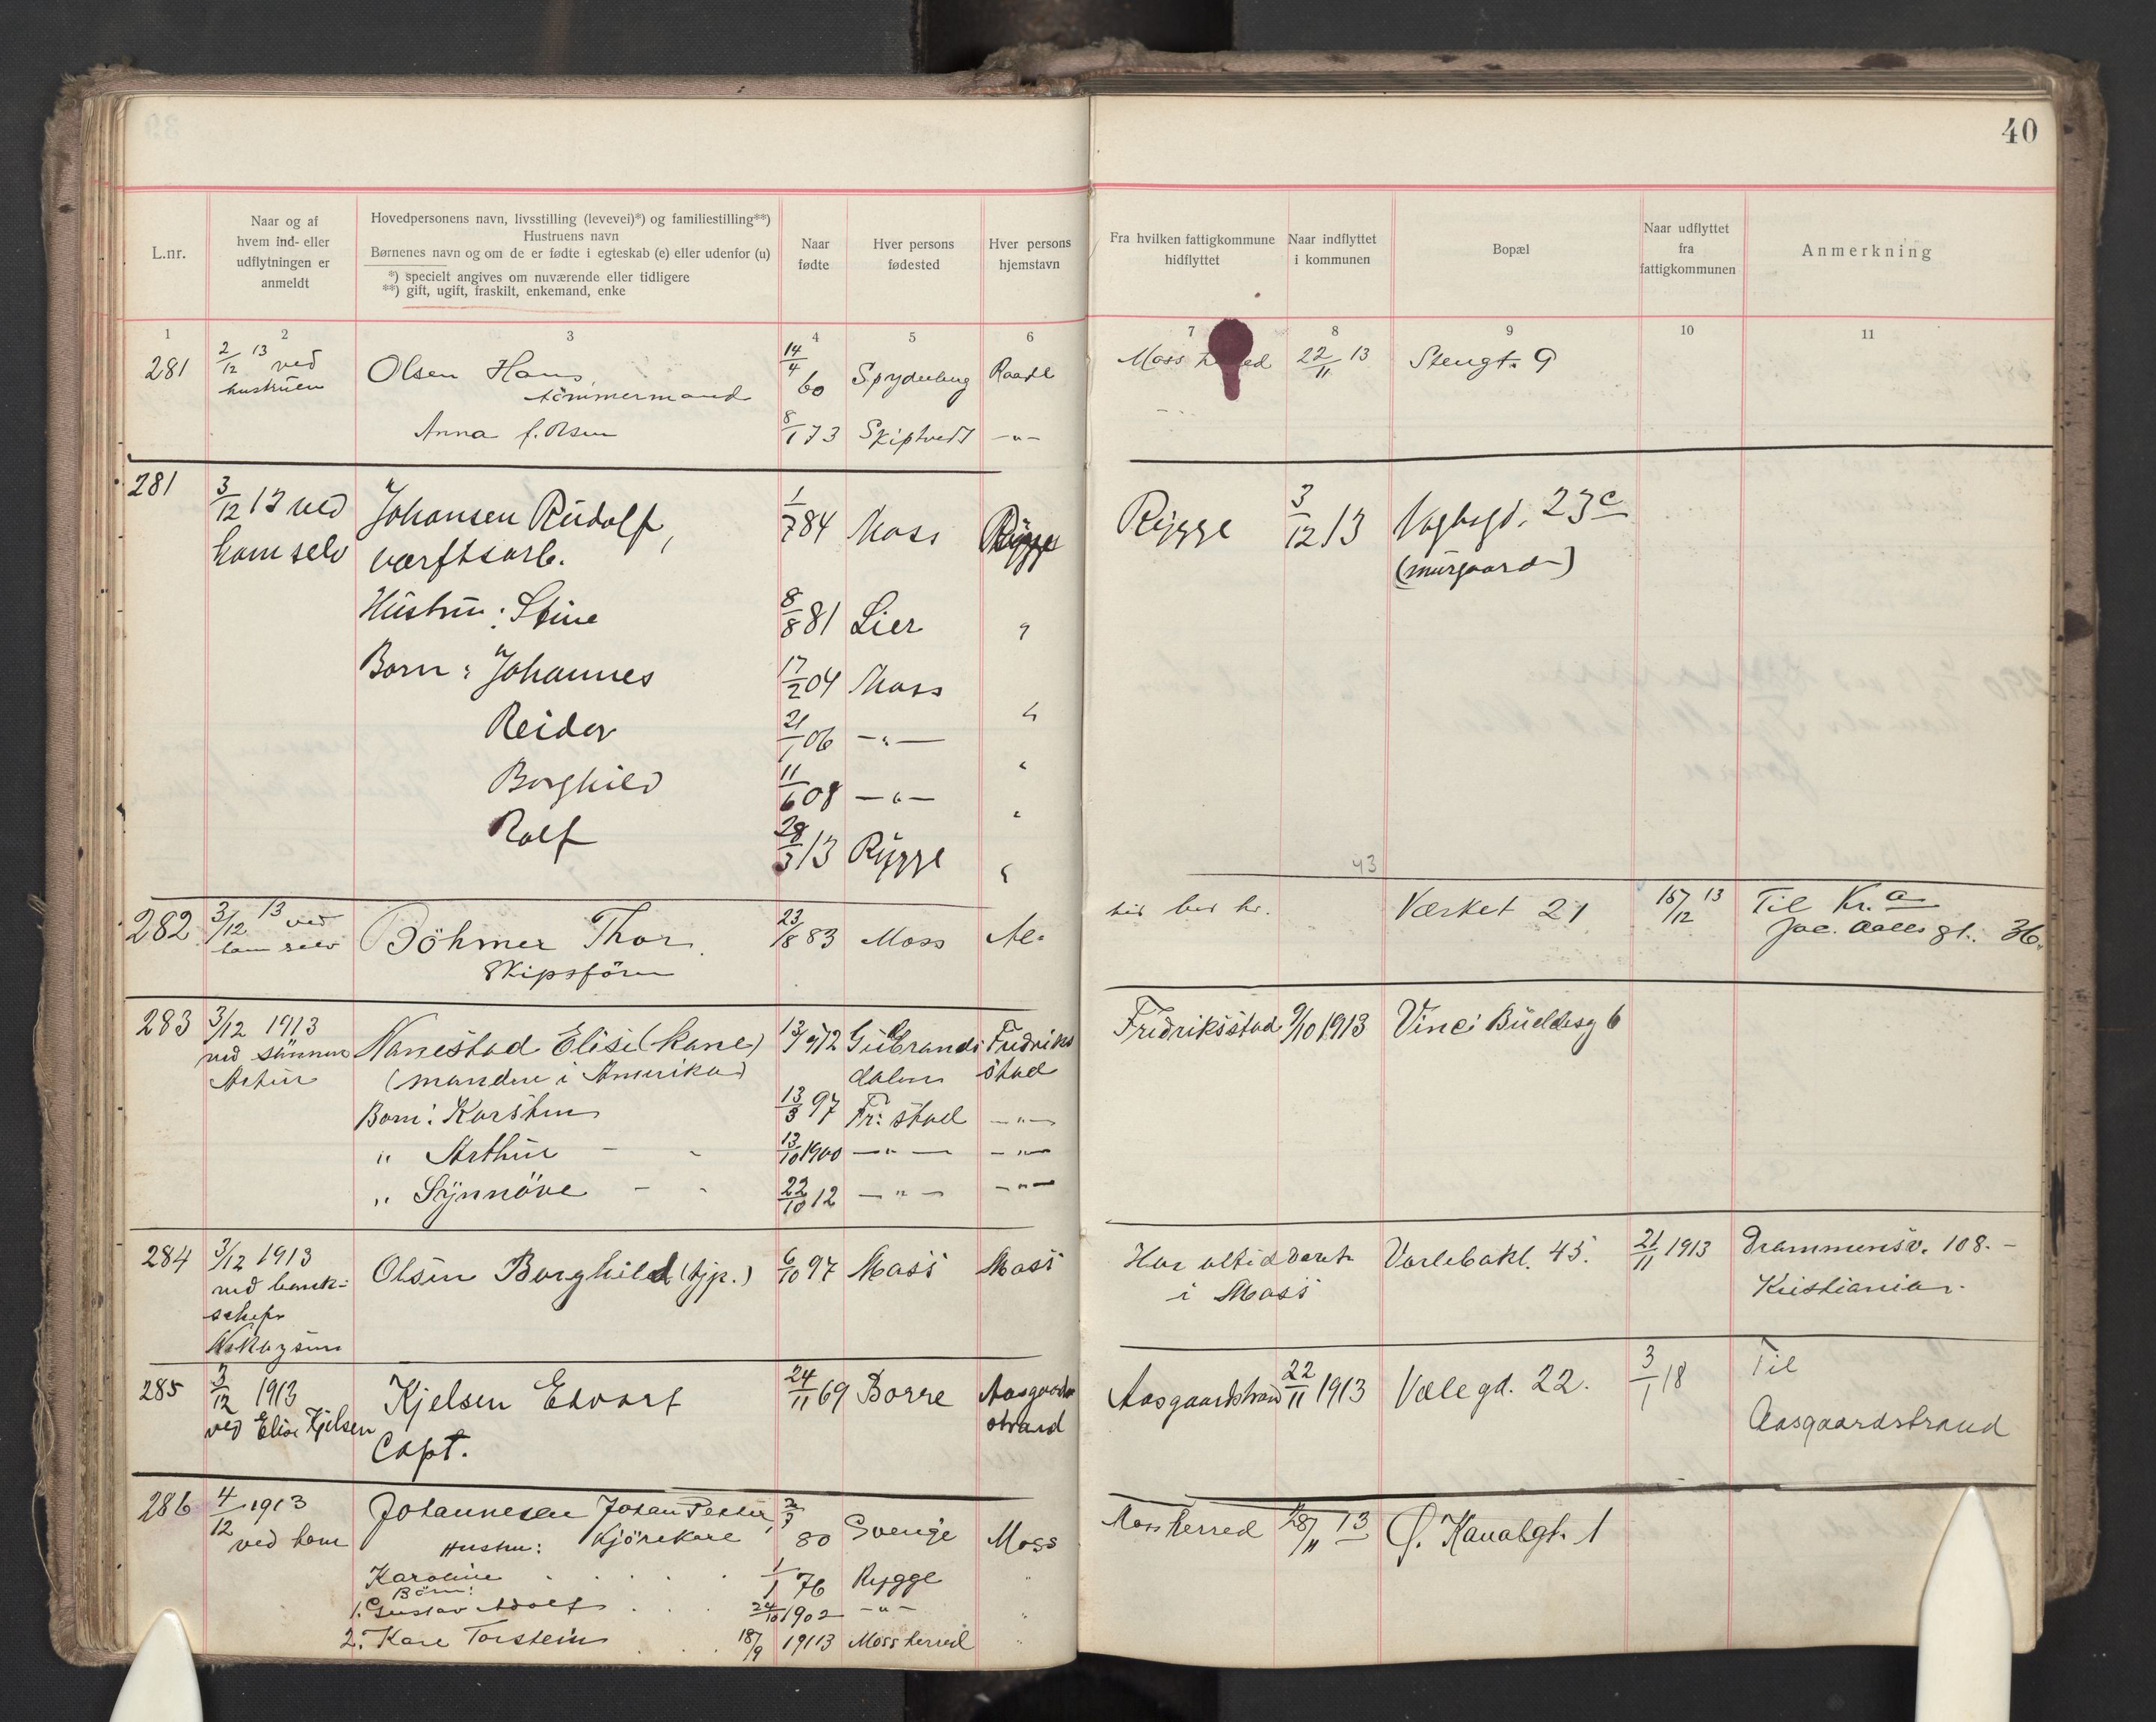 40
L.nr.
Naar og af
hvem ind- eller
udflytningen er
anmeldt
Hovedpersonens navn, livsstilling (levevei)*) og familiestilling**)
Hustruens navn
Børnenes navn og om de er fødte i egteskab (e) eller udenfor (u)
*) specielt angives om nuværende eller tidligere
**) gift, ugift, fraskilt, enkemand, enke
Naar
fødte
Hver persons
fødested
Hver persons
hjemstavn
Fra hvilken fattigkommune
hidflyttet
Naar indflyttet
i kommunen
Bopæl
Naar udflyttet
fra
fattigkommunen
Anmerkning
1 2 3 4 5 6 7 8 9 10 11
281 2/12 13 ved Olsen Hans 14/4 60 Spydeberg Raade Moss herred 22/11 13 Stengt. 9
hustruen tömmermand
Anna f. Olsen 8/1 73 Skiptvedt -"-
281 3/12 13 ved Johansen Rudolf, 1/7 84 Moss Rygge Rygge 3/12 13 23c
ham selv værftsarb. (murgaard)
Hustru: Stine 8/8 81 Lier "
Børn: Johannes 17/2 04 Moss "
Reidar 21/1 06 -"- "
Borghild 11/6 08 -"- "
Rolf 28/3 13 Rygge "
43
282 3/12 13 ved Böhmer Thor. 23/8 83 Moss Værket 21 15/12 13 Til Kr.a
ham selv Skipsfører Jac. Aalls gt. 36.
283 3/12 1913 Nanestad Elise (kone) 13/9 72 Gulbrands Fredriks Fredriksstad 9/10 1913 Vincs Buddesg 6
ved sønnen (manden i Amerika) dalen stad
Artur
Børn: Karsten 13/3 97 Fr: stad -"-
" Arthur - - 13/10 1900 -"- -"-
" Synnöve - - 22/10 12 -"- -"-
284 3/12 1913 Olsen Borghild (tjp.) 6/10 97 Moss Moss Har altid været Varlebakk. 45. 21/11 1913 Drammensv. 108. -
ved bank- i Moss Kristiania.
schefr
285 3/12 1913 Kjelsen Edvart 24/11 69 Borre Aasgaards Aasgaardstrand 22/11 1913 Vale gd. 22. 3/1 18 Til
ved Elise Kjelsen Capt. strand Aasgaardstrand
286 4/12 1913 Johannesen Johan Petter, 2/3 80 Sverige Moss Moss herred 28/11 13 Ø. Kanalgt. 1
ved ham Hustru: Kjörekare
Karoline 1/1 76 Rygge "
Börn:
1. Gustav Adolf 24/10 1902 -"- "
2. Kare Torstein 18/9 1913 Moss herred "